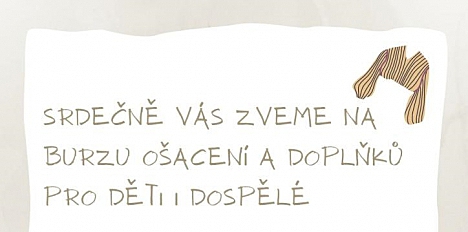 SRDEČNĚ VÁS ZVEME NA
BURZU OŠACENÍ A DOPLŇKŮ
PRO DĚTI I DOSPĚLÉ